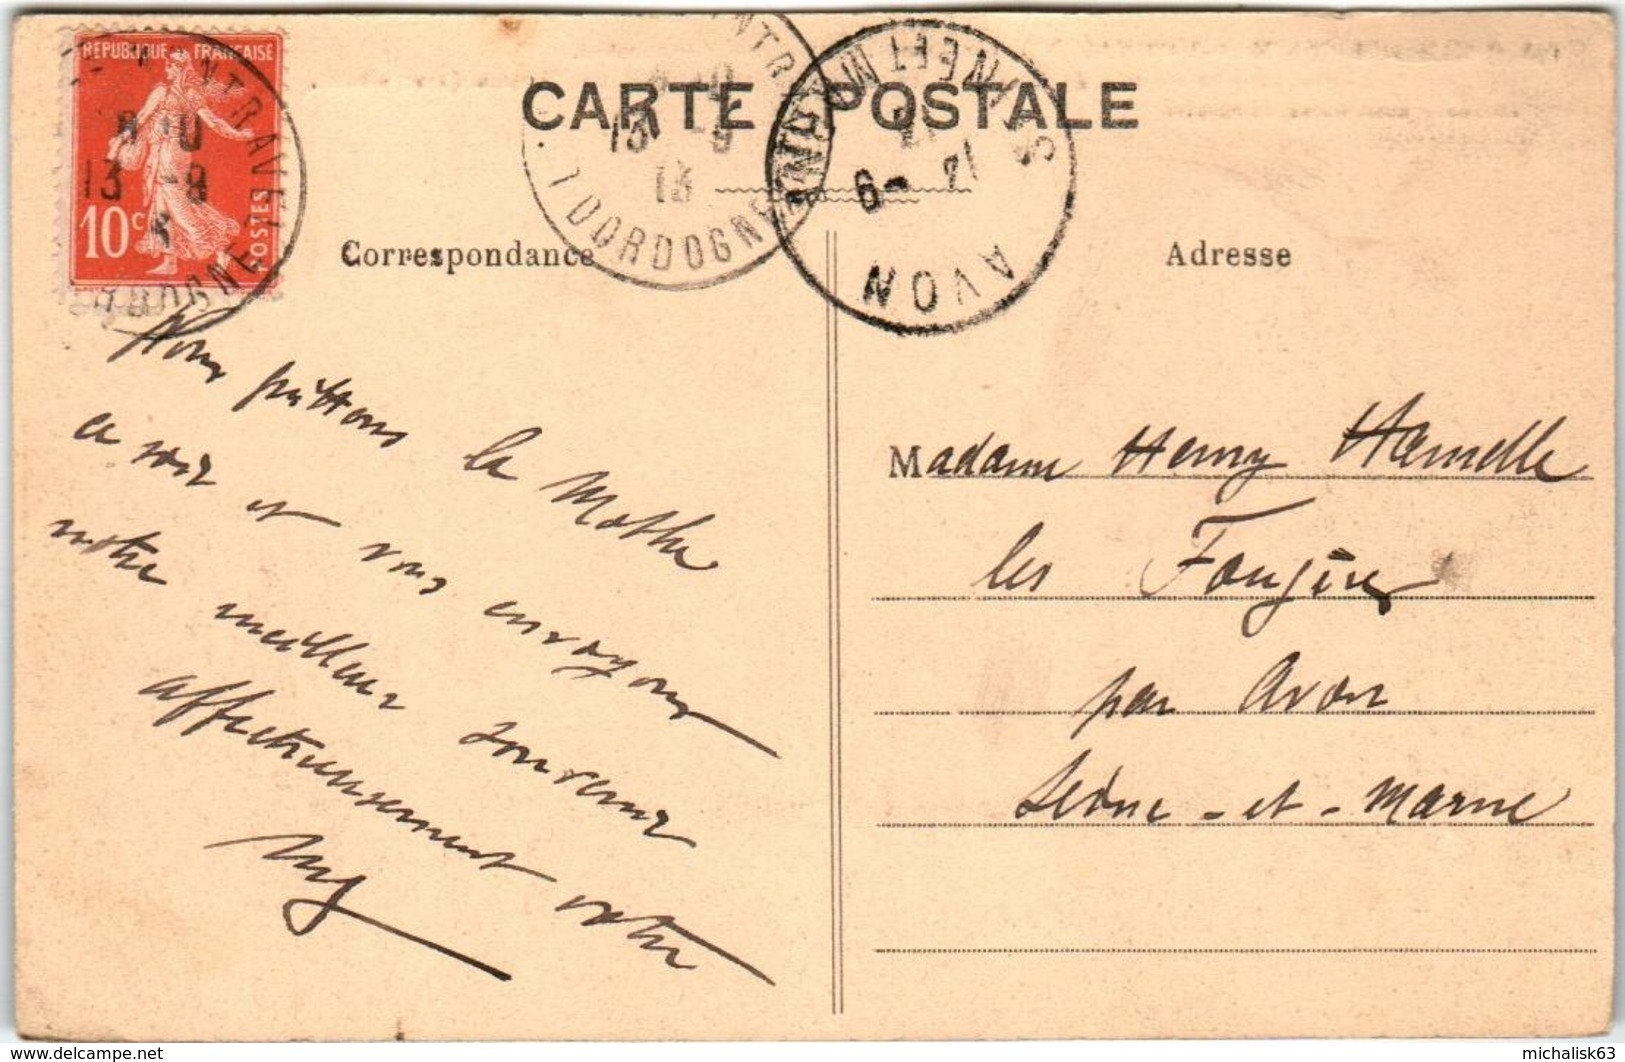 RÉPUBLIQUE FRANÇAISE
10c
POSTES
CARTE POSTALE
13 -9
13
DORDOGNE
SEINE ET MARNE
14 -9
AVON
Correspondance
Adresse
Nous quittons la Mothe
ce soir et vous envoyons
notre meilleur souvenir
affectueusement votre
Madame Henry Hamelle
les Fougères
par Avon
Seine-et-Marne
delcampe.net
michalisk63